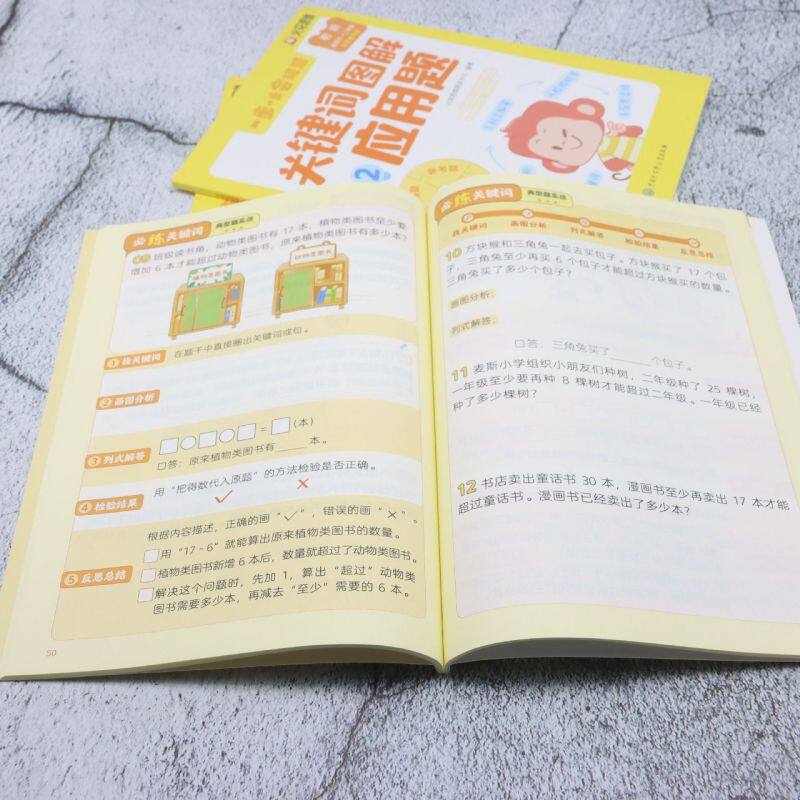 关键词图解
应用题
2
必练关键词
典型题实战
09 班级读书角，动物类图书有 17 本，植物类图书至少要
增加 6 本才能超过动物类图书，原来植物类图书有多少本？
植物类图书
动物类图书
1 找关键词
在题干中直接圈出关键词或句。
2 画图分析
3 列式解答
=
(本)
口答：原来植物类图书有______本。
4 检验结果
用“把得数代入原题”的方法检验是否正确。
✓ ×
5 反思总结
根据内容描述，正确的画“✓”，错误的画“×”。
用“17-6”就能算出原来植物类图书的数量。
植物类图书新增 6 本后，数量就超过了动物类图书。
解决这个问题时，先加 1，算出“超过”动物类
图书需要多少本，再减去“至少”需要的 6 本。
50
必练关键词
典型题实战
找关键词 画图分析 列式解答 检验结果 反思总结
10 方块猴和三角兔一起去买包子。方块猴买了 17 个包
子，三角兔至少再买 6 个包子才能超过方块猴买的数量。
三角兔买了多少个包子？
画图分析：
列式解答：
口答：三角兔买了______个包子。
11 麦斯小学组织小朋友们种树，二年级种了 25 棵树，
一年级至少要再种 8 棵树才能超过二年级。一年级已经
种了多少棵树？
12 书店卖出童话书 30 本，漫画书至少再卖出 17 本才能
超过童话书。漫画书已经卖出了多少本？